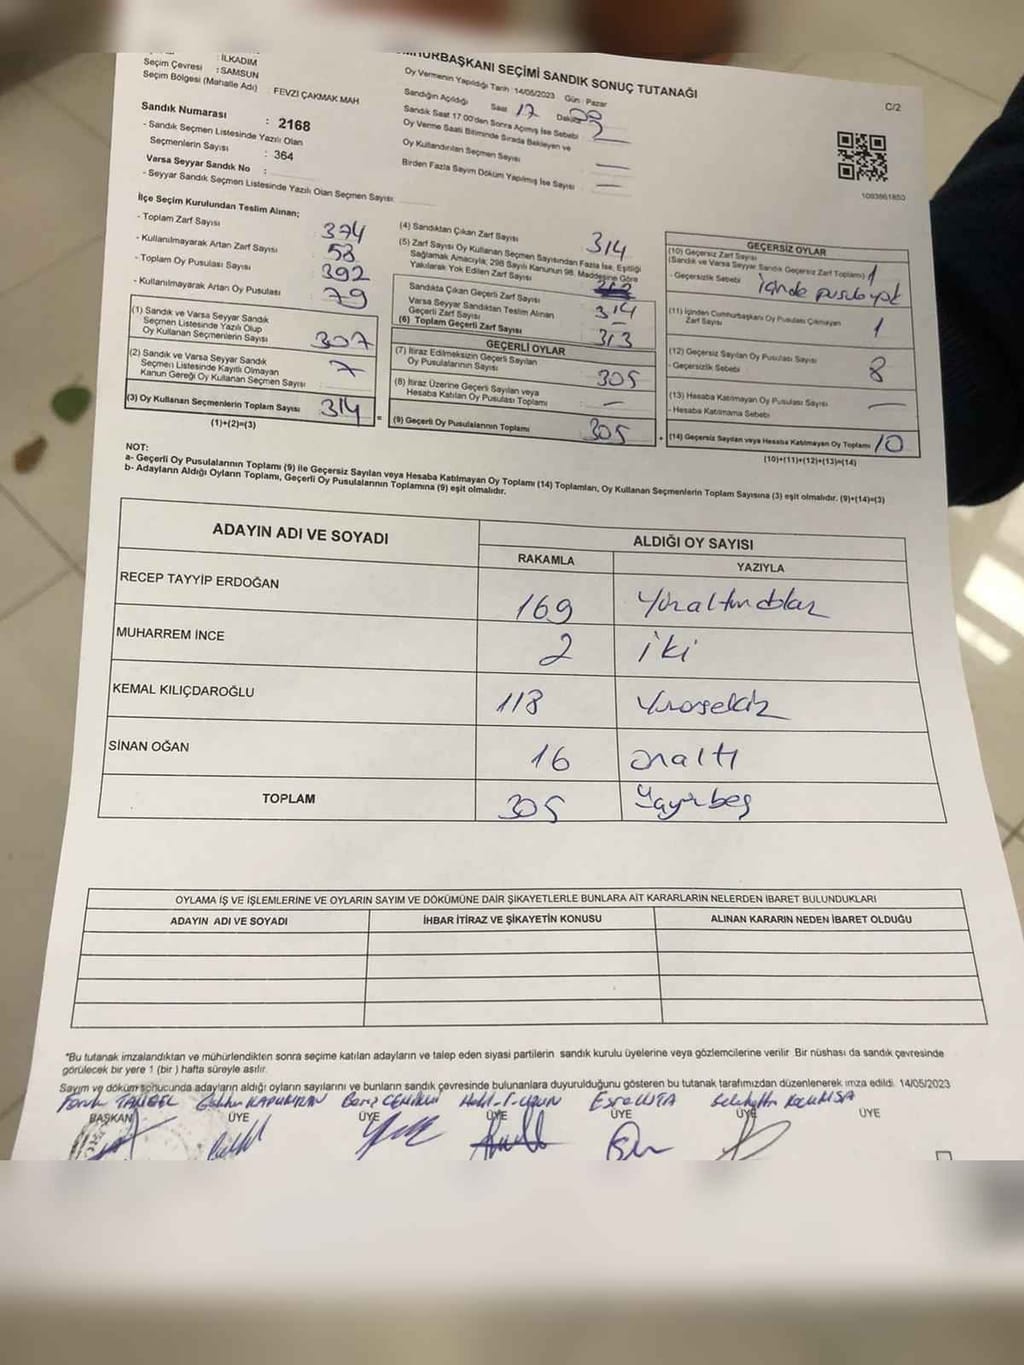 İLKADIM
Seçim Çevresi : SAMSUN
Seçim Bölgesi (Mahalle Adı) : FEVZİ ÇAKMAK MAH
Sandık Numarası : 2168
- Sandık Seçmen Listesinde Yazılı Olan
Seçmenlerin Sayısı : 364
Varsa Seyyar Sandık No :
- Seyyar Sandık Seçmen Listesinde Yazılı Olan Seçmen Sayısı:
CUMHURBAŞKANI SEÇİMİ SANDIK SONUÇ TUTANAĞI
Oy Vermenin Yapıldığı Tarih : 14/05/2023 Gün : Pazar
Sandığın Açıldığı Saat 17 Dakika
Sandık Saat 17.00'den Sonra Açımış İse Sebebi
Oy Verme Saati Bitiminde Sırada Bekleyen ve
Oy Kullandırılan Seçmen Sayısı
Birden Fazla Sayım Döküm Yapılmış İse Sayısı
C/2
1093861850
İlçe Seçim Kurulundan Teslim Alınan;
- Toplam Zarf Sayısı 374
- Kullanılmayarak Artan Zarf Sayısı 58
- Toplam Oy Pusulası Sayısı 392
- Kullanılmayarak Artan Oy Pusulası 79
(1) Sandık ve Varsa Seyyar Sandık
Seçmen Listesinde Yazılı Olup
Oy Kullanan Seçmenlerin Sayısı 307
(2) Sandık ve Varsa Seyyar Sandık
Seçmen Listesinde Kayıtlı Olmayan
Kanun Gereği Oy Kullanan Seçmen Sayısı 7
(3) Oy Kullanan Seçmenlerin Toplam Sayısı 314 =
(1)+(2)=(3)
(4) Sandıktan Çıkan Zarf Sayısı 314
(5) Zarf Sayısı Oy Kullanan Seçmen Sayısından Fazla İse, Eşitliği
Sağlamak Amacıyla; 298 Sayılı Kanunun 98. Maddesine Göre
Yakılarak Yok Edilen Zarf Sayısı
Sandıkta Çıkan Geçerli Zarf Sayısı 314
Varsa Seyyar Sandıktan Teslim Alınan
Geçerli Zarf Sayısı
(6) Toplam Geçerli Zarf Sayısı 313
GEÇERLİ OYLAR
(7) İtiraz Edilmeksizin Geçerli Sayılan
Oy Pusulalarının Sayısı 305
(8) İtiraz Üzerine Geçerli Sayılan veya
Hesaba Katılan Oy Pusulası Toplamı —
(9) Geçerli Oy Pusulalarının Toplamı 305 +
GEÇERSİZ OYLAR
(10) Geçersiz Zarf Sayısı
(Sandık ve Varsa Seyyar Sandık Geçersiz Zarf Toplamı) 1
- Geçersizlik Sebebi İçinde pusula yok
(11) İçinden Cumhurbaşkanı Oy Pusulası Çıkmayan
Zarf Sayısı 1
(12) Geçersiz Sayılan Oy Pusulası Sayısı 8
- Geçersizlik Sebebi
(13) Hesaba Katılmayan Oy Pusulası Sayısı —
- Hesaba Katılmama Sebebi
(14) Geçersiz Sayılan veya Hesaba Katılmayan Oy Toplamı 10
(10)+(11)+(12)+(13)=(14)
NOT:
a- Geçerli Oy Pusulalarının Toplamı (9) ile Geçersiz Sayılan veya Hesaba Katılmayan Oy Toplamı (14) Toplamları, Oy Kullanan Seçmenlerin Toplam Sayısına (3) eşit olmalıdır. (9)+(14)=(3)
b- Adayların Aldığı Oyların Toplamı, Geçerli Oy Pusulalarının Toplamına (9) eşit olmalıdır.
ADAYIN ADI VE SOYADI ALDIĞI OY SAYISI
RAKAMLA YAZIYLA
RECEP TAYYİP ERDOĞAN 169 Yüzaltmdokz
MUHARREM İNCE 2 İki
KEMAL KILIÇDAROĞLU 118 Yüzonsekiz
SİNAN OĞAN 16 onaltı
TOPLAM 305 Üçyüzbeş
OYLAMA İŞ VE İŞLEMLERİNE VE OYLARIN SAYIM VE DÖKÜMÜNE DAİR ŞİKAYETLERLE BUNLARA AİT KARARLARIN NELERDEN İBARET BULUNDUKLARI
ADAYIN ADI VE SOYADI İHBAR İTİRAZ VE ŞİKAYETİN KONUSU ALINAN KARARIN NEDEN İBARET OLDUĞU
*Bu tutanak imzalandıktan ve mühürlendikten sonra seçime katılan adayların ve talep eden siyasi partilerin sandık kurulu üyelerine veya gözlemcilerine verilir. Bir nüshası da sandık çevresinde
görülecek bir yere 1 (bir ) hafta süreyle asılır.
Sayım ve döküm sonucunda adayların aldığı oyların sayılarını ve bunların sandık çevresinde bulunanlara duyurulduğunu gösteren bu tutanak tarafımızdan düzenlenerek imza edildi. 14/05/2023
Esra USTA
BAŞKAN ÜYE ÜYE ÜYE ÜYE ÜYE ÜYE